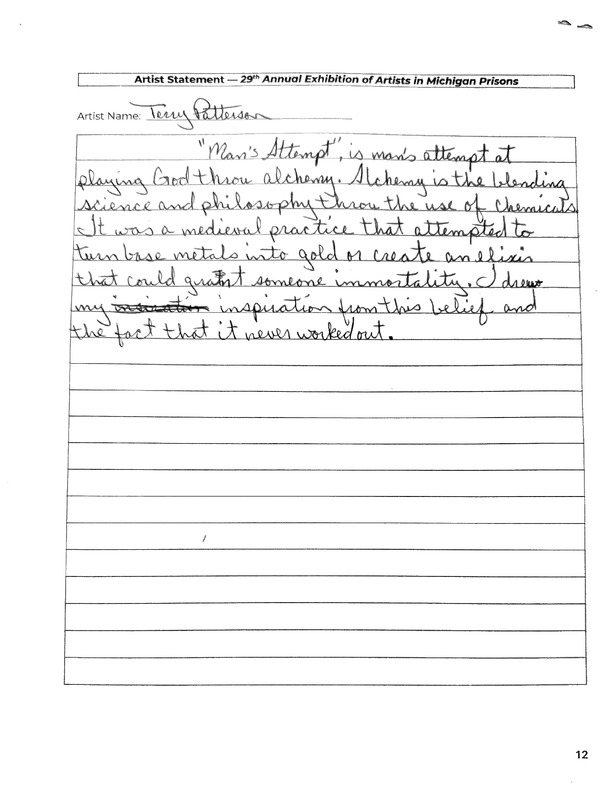 Artist Statement — 29th Annual Exhibition of Artists in Michigan Prisons
Artist Name: Terry Patterson
"Man's Attempt", is man's attempt at
playing God throu alchemy. Alchemy is the blending
science and philosophy throu the use of chemicals
It was a medieval practice that attempted to
turn base metals into gold or create an elixir
that could grant someone immortality. I drew
my inspiration from this belief and
the fact that it never worked out.
12